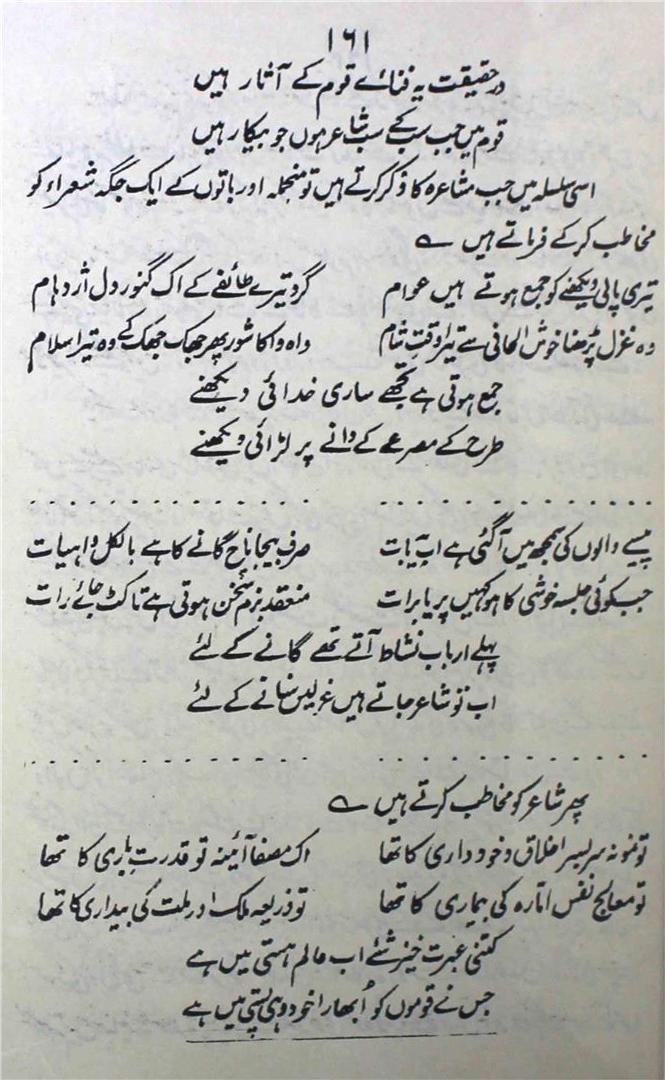 ۱۶۱
در حقیقت یہ فنائے قوم کے آثار ہیں
قوم میں جب سب کے سب شاعر ہوں جو بیکار ہیں
اسی سلسلہ میں جب مشاعرہ کا ذکر کرتے ہیں تو منجملہ اور باتوں کے ایک جگہ شعراء کو
مخاطب کر کے فرماتے ہیں ؎
تیری پالی دیکھنے کو جمع ہوتے ہیں عوام گرد تیرے طائفے کے اک گنور دل اژدہام
وہ غزل پڑھنا خوش الحانی سے تیرا وقتِ شام واہ وا کا شور پھر جھک جھک کے وہ تیرا سلام
جمع ہوتی ہے تجھے ساری خدائی دیکھنے
طرح کے مصرعے کے دانے پر لڑائی دیکھنے
پیسے والوں کی سمجھ میں آ گئی ہے اب یہ بات صرف بیجا ناچ گانے کا ہے بالکل واہیات
جب کوئی جلسہ خوشی کا ہو کہیں پر یا برات منعقد بزم سخن ہوتی ہے تا کٹ جائے رات
پہلے ارباب نشاط آتے تھے گانے کے لئے
اب تو شاعر جاتے ہیں غزلیں سنانے کے لئے
پھر شاعر کو مخاطب کرتے ہیں ؎
تو نمونہ سر بسر اخلاق و خودداری کا تھا اک مصفا آئینہ تو قدرتِ باری کا تھا
تو معالج نفس امّارہ کی بیماری کا تھا تو ذریعہ ملک اور ملت کی بیداری کا تھا
کتنی عبرت خیز شئے اب عالم ہستی میں ہے
جس نے قوموں کو اُبھارا خود وہی پستی میں ہے